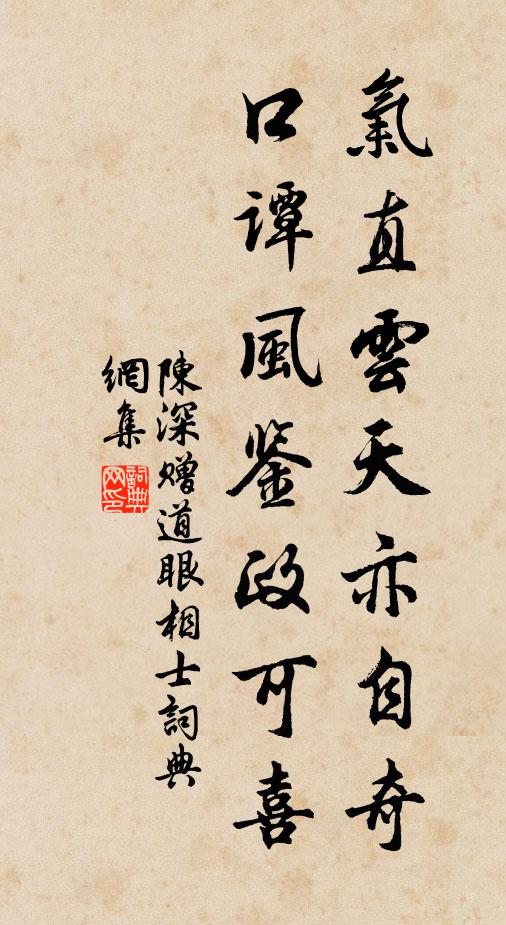 氣直雲天亦自奇
口谭風鉴政可喜
陳深赠道眼相士詞典
網集
詞典
网印